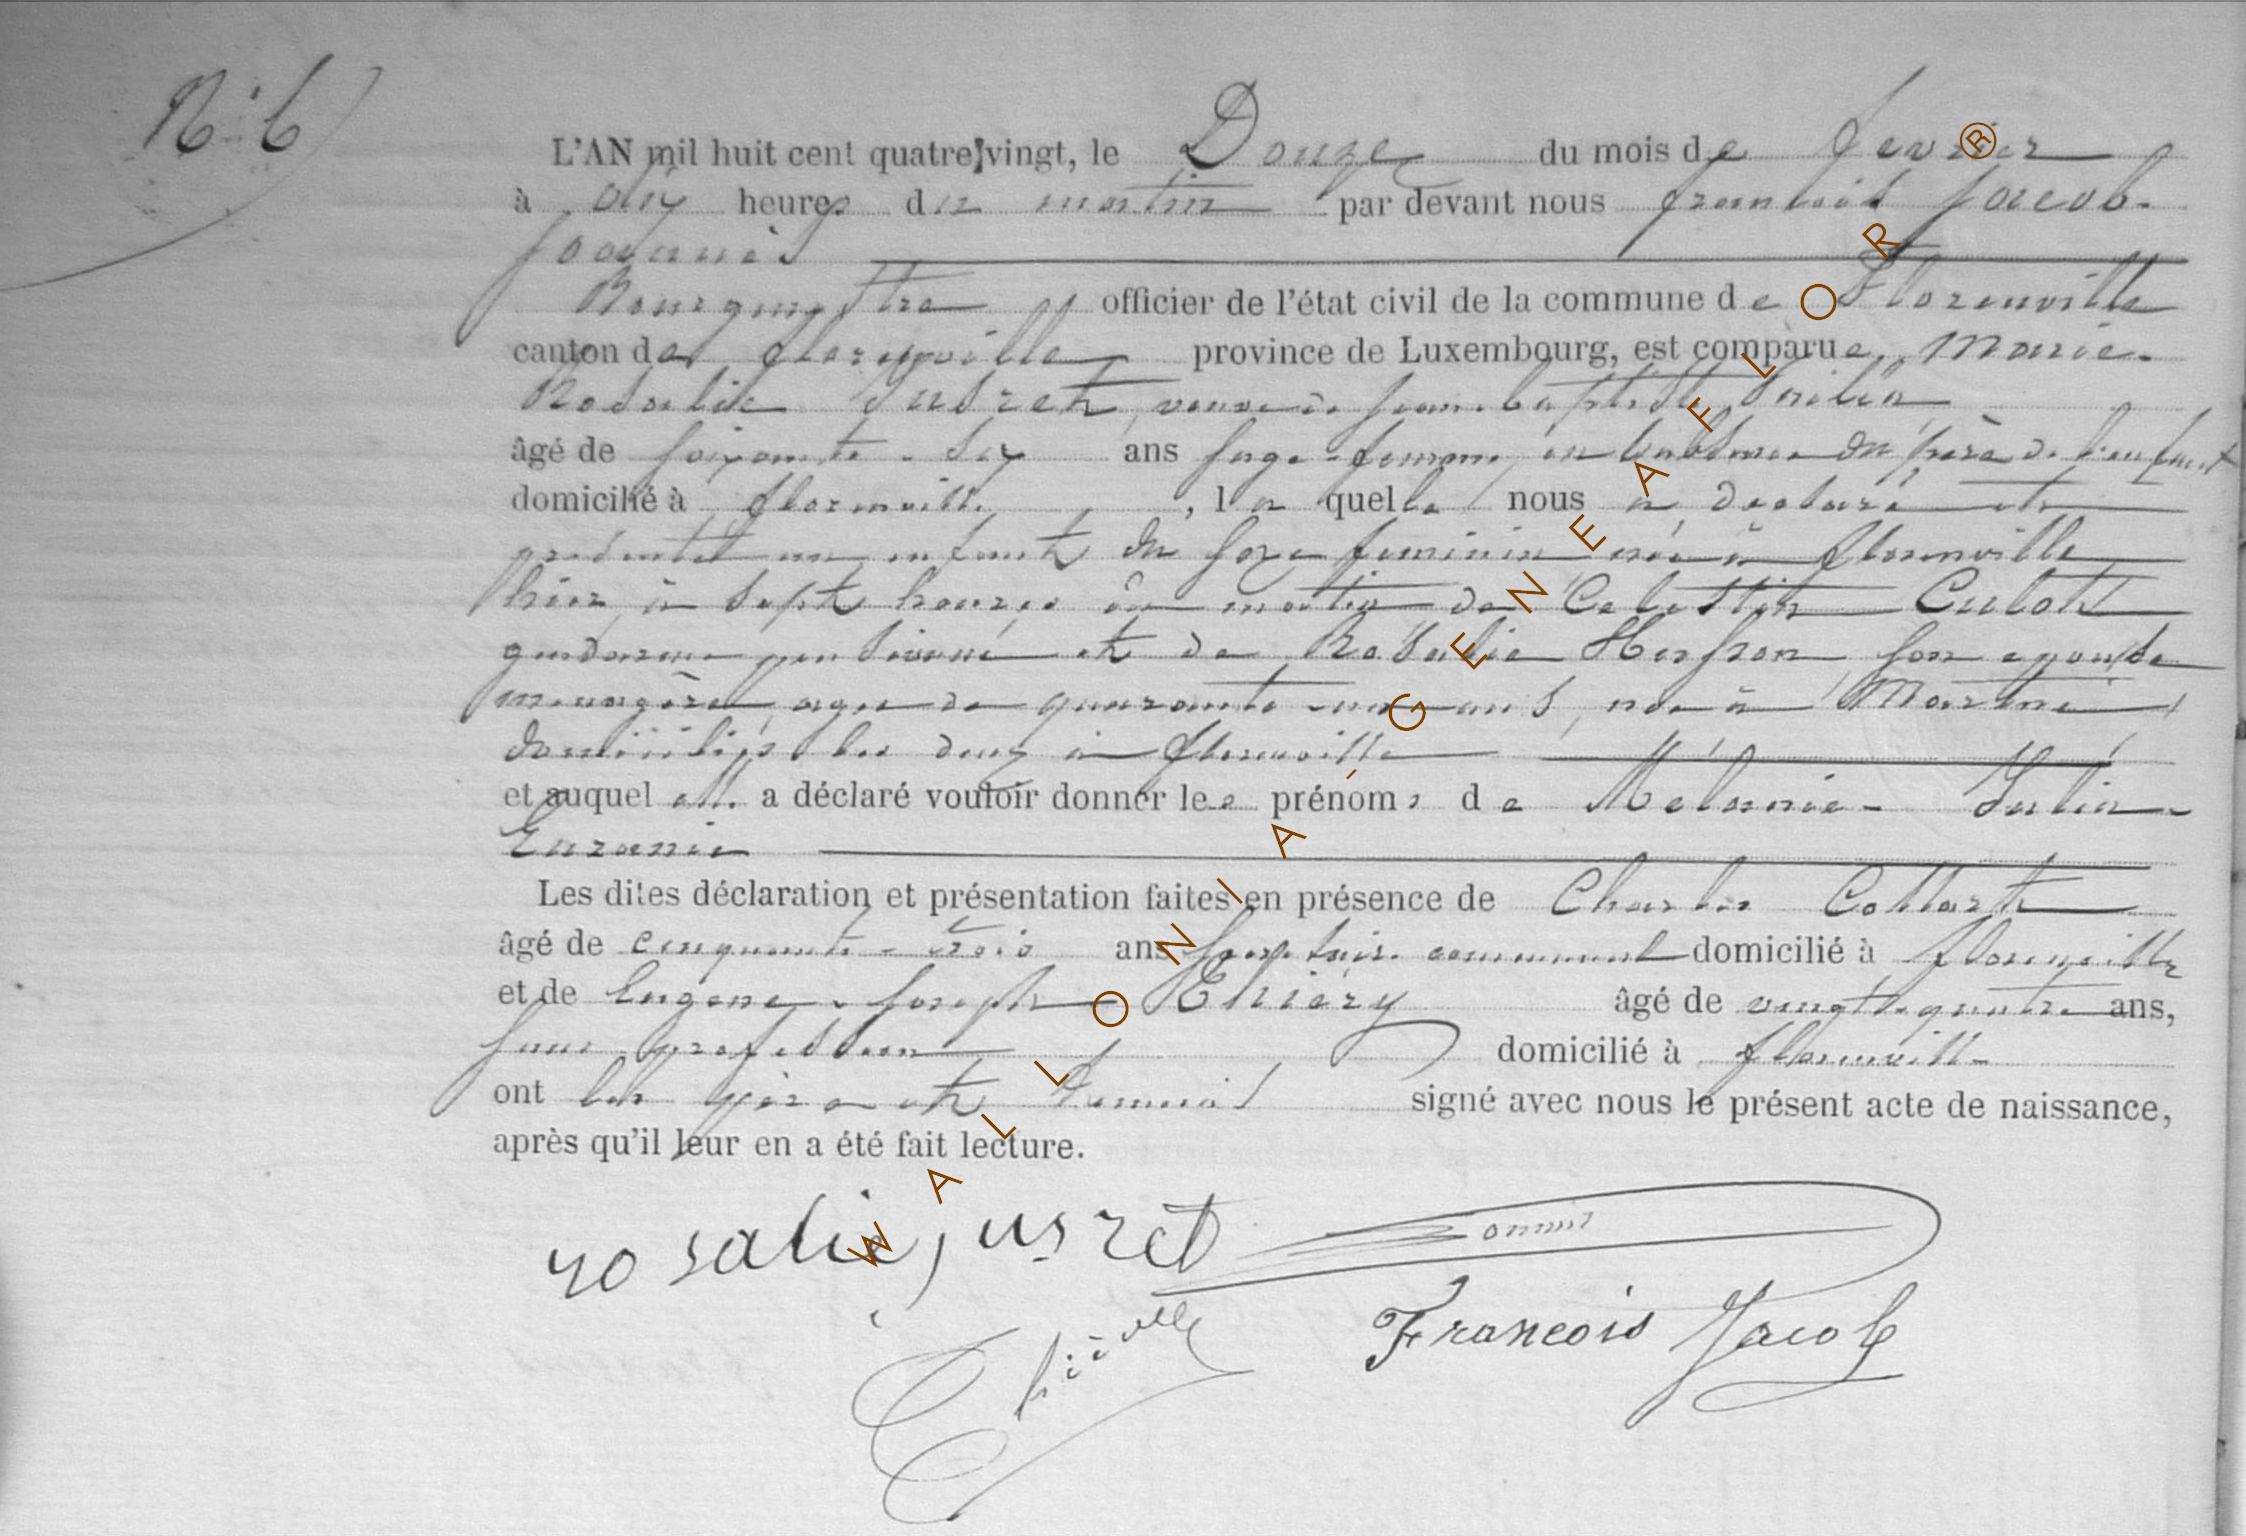 N° 6
L'AN mil huit cent quatre-vingt, le Douze du mois de fevrier
à dix heures du matin par devant nous francois Jacob-
Joannès
Bourgmestre officier de l'état civil de la commune de Florenville
canton de florenville province de Luxembourg, est comparue, Marie-
Rosalie Jusret, veuve de jean-baptiste
âgé de soixante-six ans sage-femme, en l'absence du père de l'enfant
domicilié à florenville, laquelle nous a declaré et
presentet un enfant du sexe feminin née à florenville
hier à sept heures du matin de Celestin Culot
gendarme pensionné et de Rosalie son epouse
menagère, agée de quarante-un ans, née à
domiciliés les deux à florenville
et auquel elle a déclaré vouloir donner les prénoms de Mélanie- Julia-
Euranie
Les dites déclaration et présentation faites en présence de Charles Collart
âgé de cinquante-trois ans secretaire communal domicilié à florenville
et de Eugene-Joseph Thiéry âgé de vingt-quatre ans,
sans profession domicilié à florenville
ont les père et temoins signé avec nous le présent acte de naissance,
après qu'il leur en a été fait lecture.
rosalie jusret
François Jacob
WALLONNIA GÉNÉAFLOR®